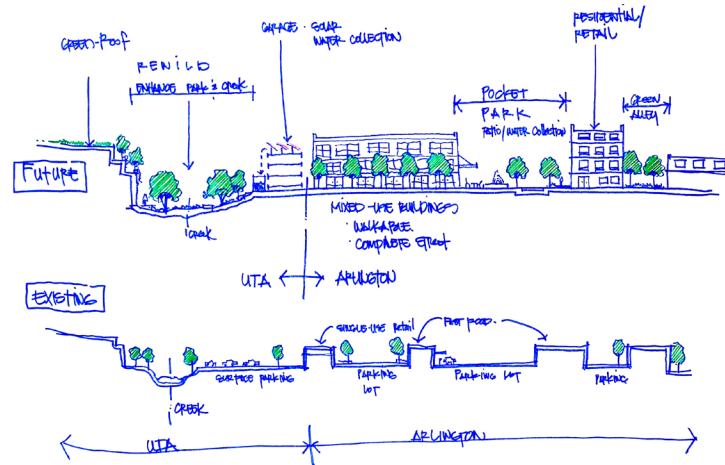 GREEN-ROOF
REWILD
ENHANCE PARK & CREEK
GARAGE · SOLAR
WATER COLLECTION
POCKET
PARK
PATIO/WATER COLLECTION
RESIDENTIAL/
RETAIL
GREEN
ALLEY
FUTURE
CREEK
MIXED-USE BUILDINGS
· WALKABLE
· COMPLETE STREET
UTA
ARLINGTON
EXISTING
SINGLE-USE RETAIL
FAST FOOD
SURFACE PARKING
PARKING
LOT
PARKING LOT
PARKING
CREEK
UTA
ARLINGTON